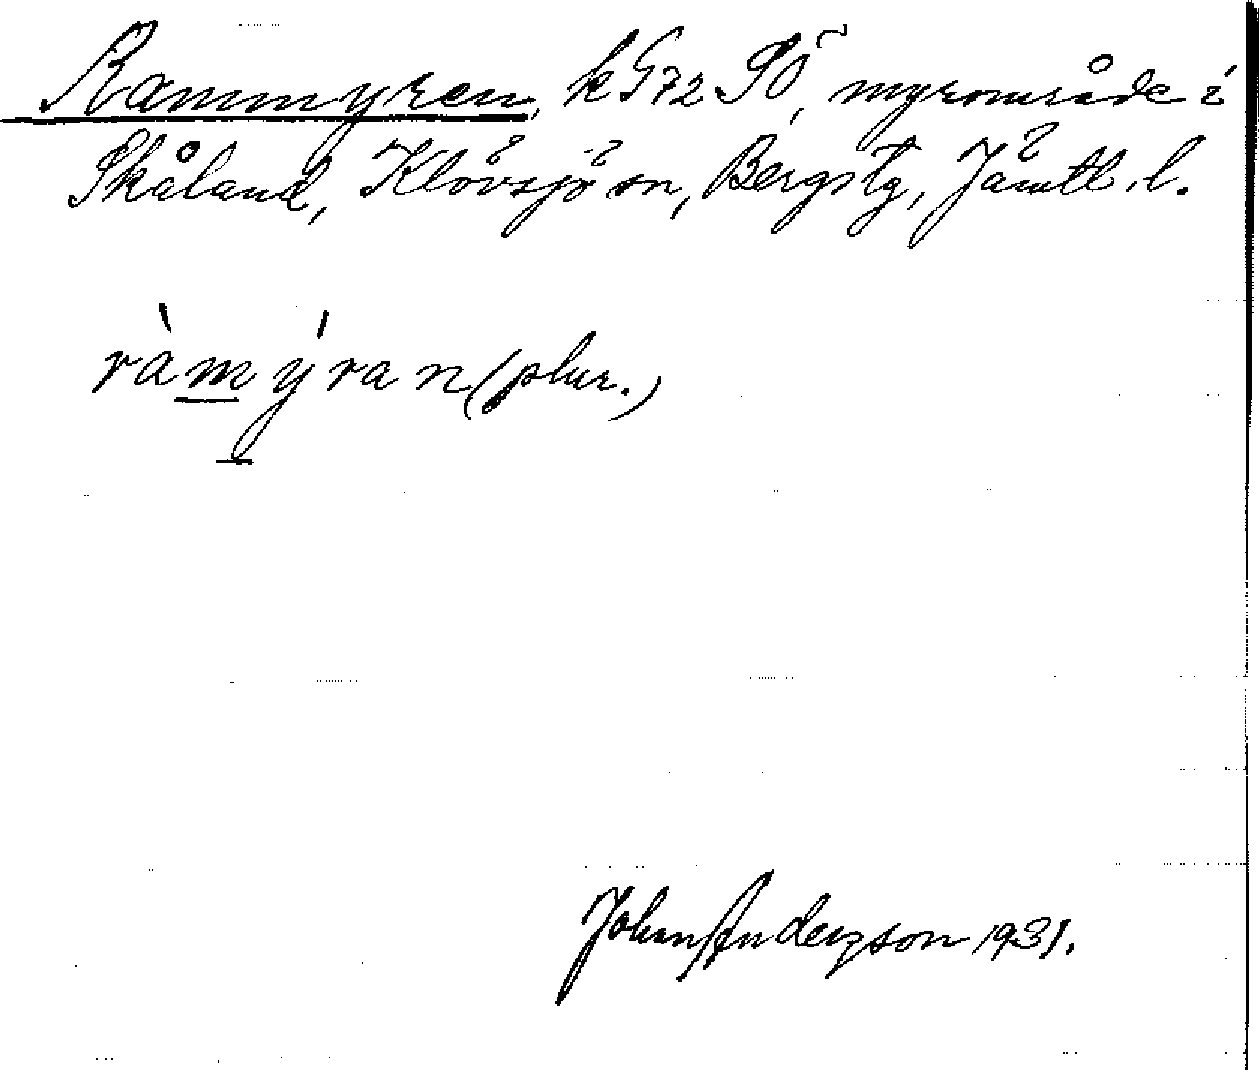 Rammyren, kG72SÖ, myrområde i
Skåland, Klövsjö sn, Bergs tg, Jämtl. l.
ràmýran (plur.)
Johan Anderzson 1931.